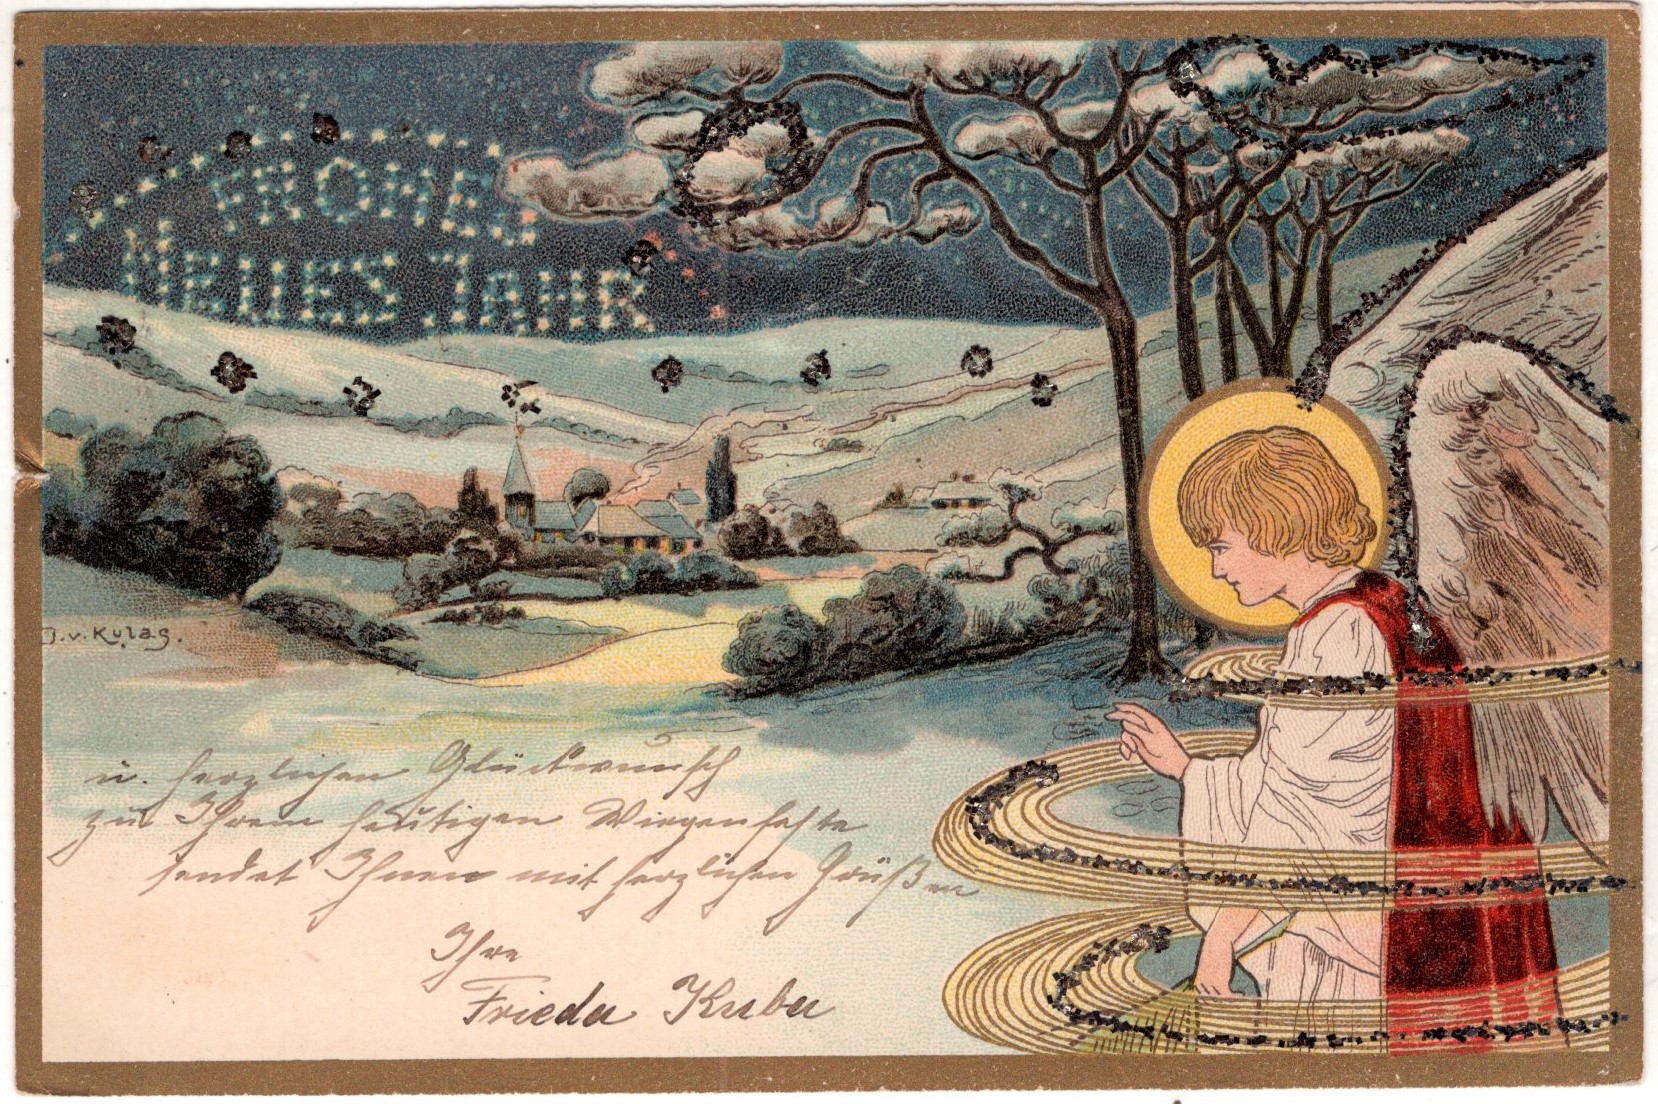 FROHES
NEUES JAHR
J.v.Kulas.
u. herzlichen Glückwunsch
zu Ihrem heutigen Wiegenfeste
sendet Ihnen mit herzlichen Grüßen
Ihre
Frieda Kuba